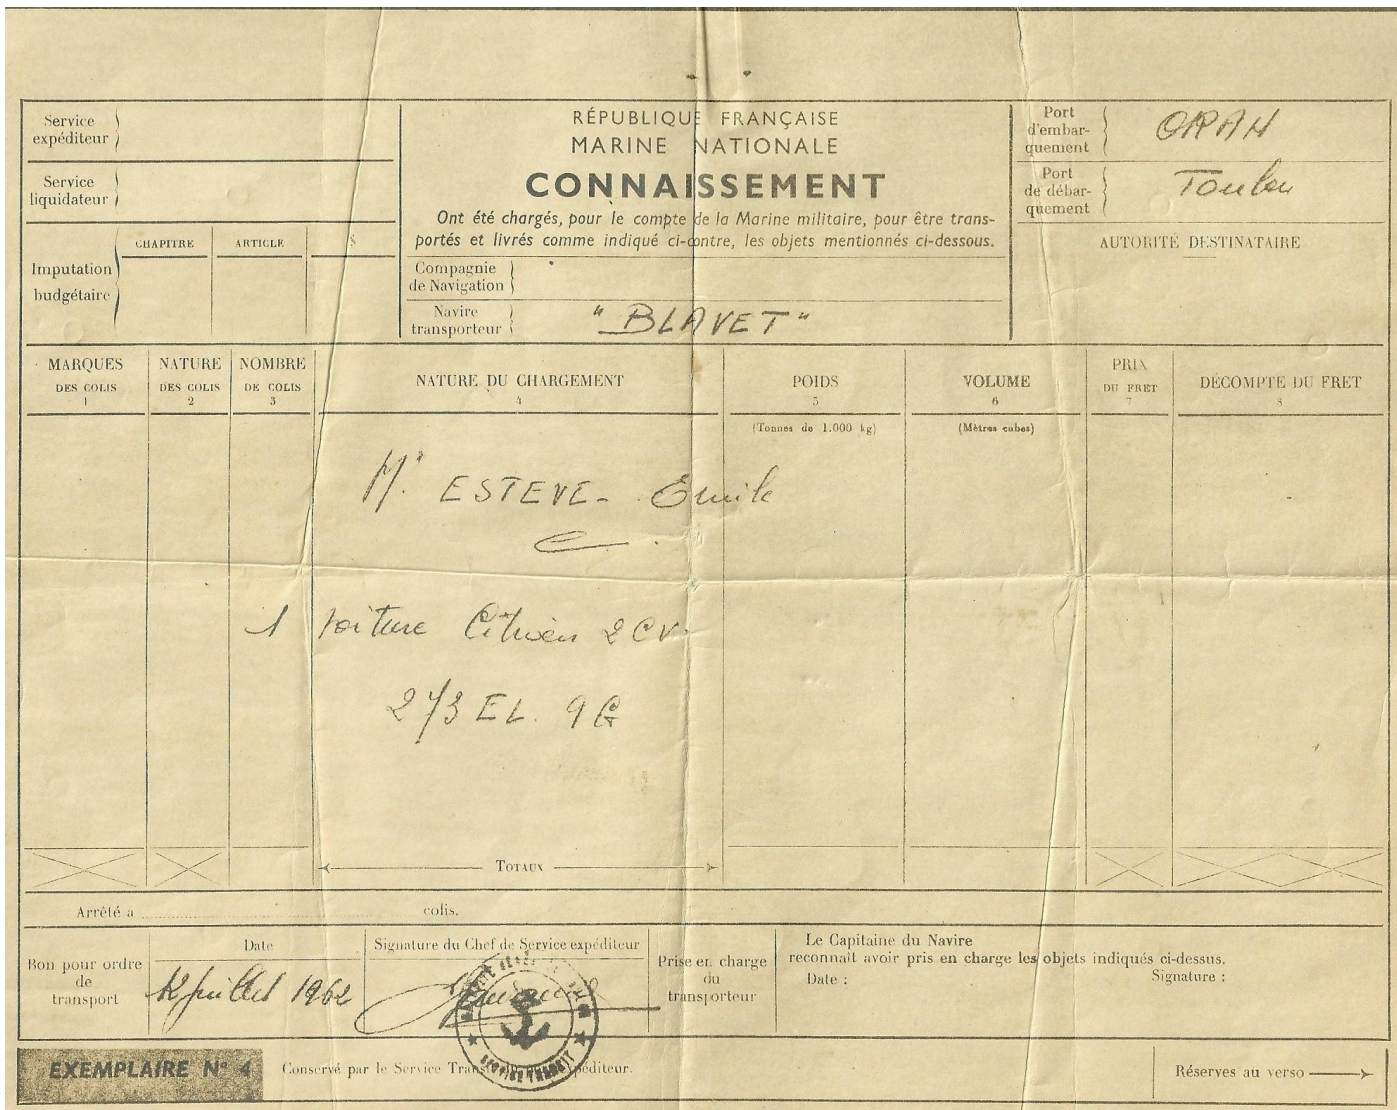 Service
expéditeur
Service
liquidateur
CHAPITRE ARTICLE §
Imputation
budgétaire
RÉPUBLIQUE FRANÇAISE
MARINE NATIONALE
CONNAISSEMENT
Ont été chargés, pour le compte de la Marine militaire, pour être trans-
portés et livrés comme indiqué ci-contre, les objets mentionnés ci-dessous.
Compagnie
de Navigation
Navire
transporteur
"BLAVET"
Port
d'embar-
quement
ORAN
Port
de débar-
quement
Toulon
AUTORITÉ DESTINATAIRE
MARQUES
DES COLIS
1
NATURE
DES COLIS
2
NOMBRE
DE COLIS
3
NATURE DU CHARGEMENT
4
POIDS
5
(Tonnes de 1.000 kg)
VOLUME
6
(Mètres cubes)
PRIX
DU FRET
7
DÉCOMPTE DU FRET
8
Mr. ESTEVE - Emile
1 voiture Citroën 2 CV.
273 EL. 9G
TOTAUX
Arrêté a colis.
Bon pour ordre
de
transport
Date
12 Juillet 1962
Signature du Chef de Service expéditeur
Prise en charge
du
transporteur
Le Capitaine du Navire
reconnaît avoir pris en charge les objets indiqués ci-dessus.
Date : Signature :
SERVICE TRANSIT
EXEMPLAIRE N° 4
Conservé par le Service expéditeur.
Réserves au verso